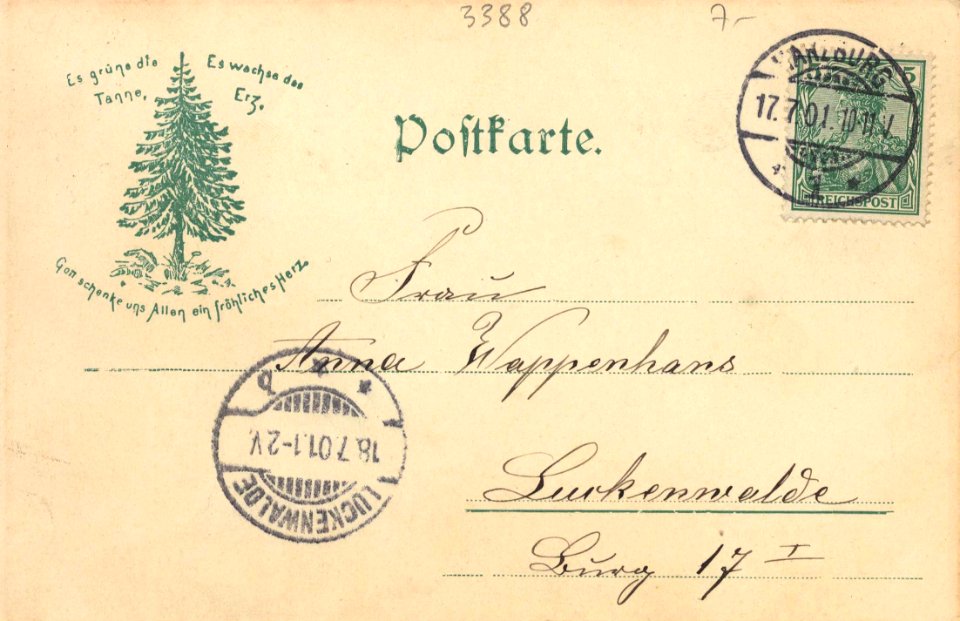 3388 7-
Es grüne die
Tanne,
Es wachse das
Erz,
Gott schenke uns Allen ein fröhliches Herz.
Postkarte.
HARZBURG
17.7.01. 10-11 V.
1
5
REICHSPOST
Frau
Anna Wappenhans
Luckenwalde
Burg 17 I
LUCKENWALDE
18.7.01. 1-2 V.